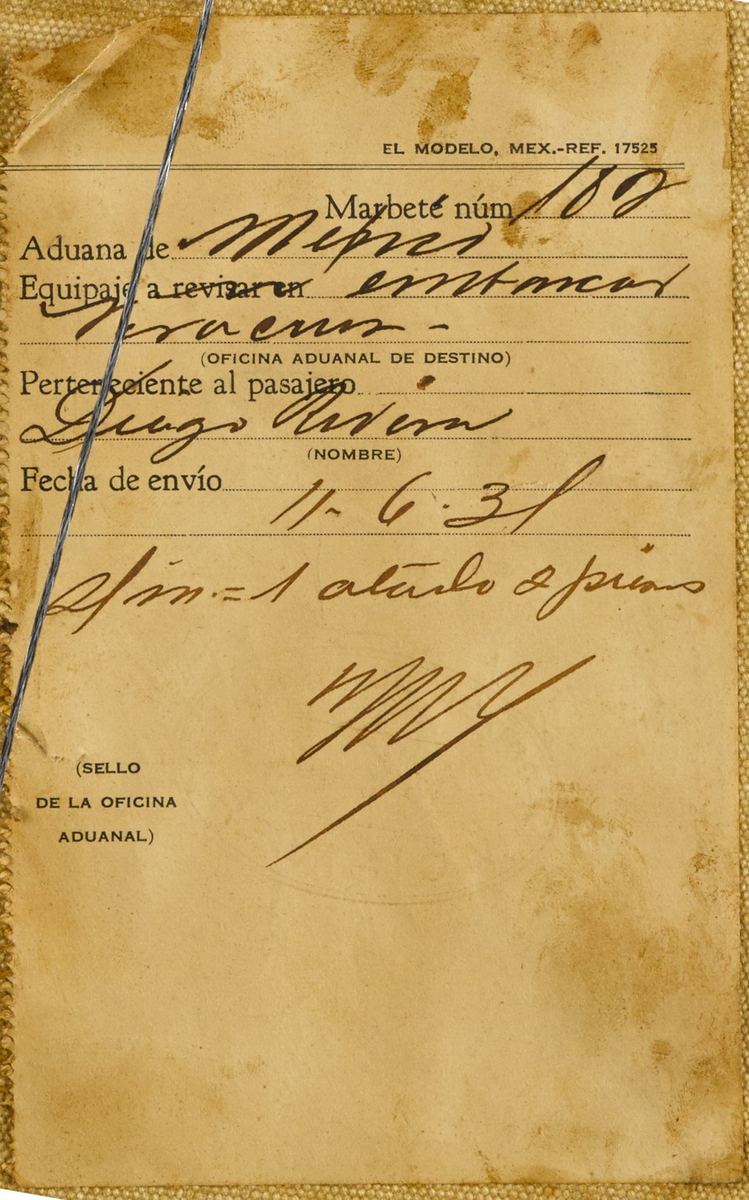 EL MODELO, MEX.-REF. 17525
Marbete núm 182
Aduana de Méjico
Equipaje a revisar en embarcar
Veracruz -
(OFICINA ADUANAL DE DESTINO)
Perteneciente al pasajero
Diego Rivera
(NOMBRE)
Fecha de envío
11-6-31
s/m.=1 atado 2 piezas
(SELLO
DE LA OFICINA
ADUANAL)